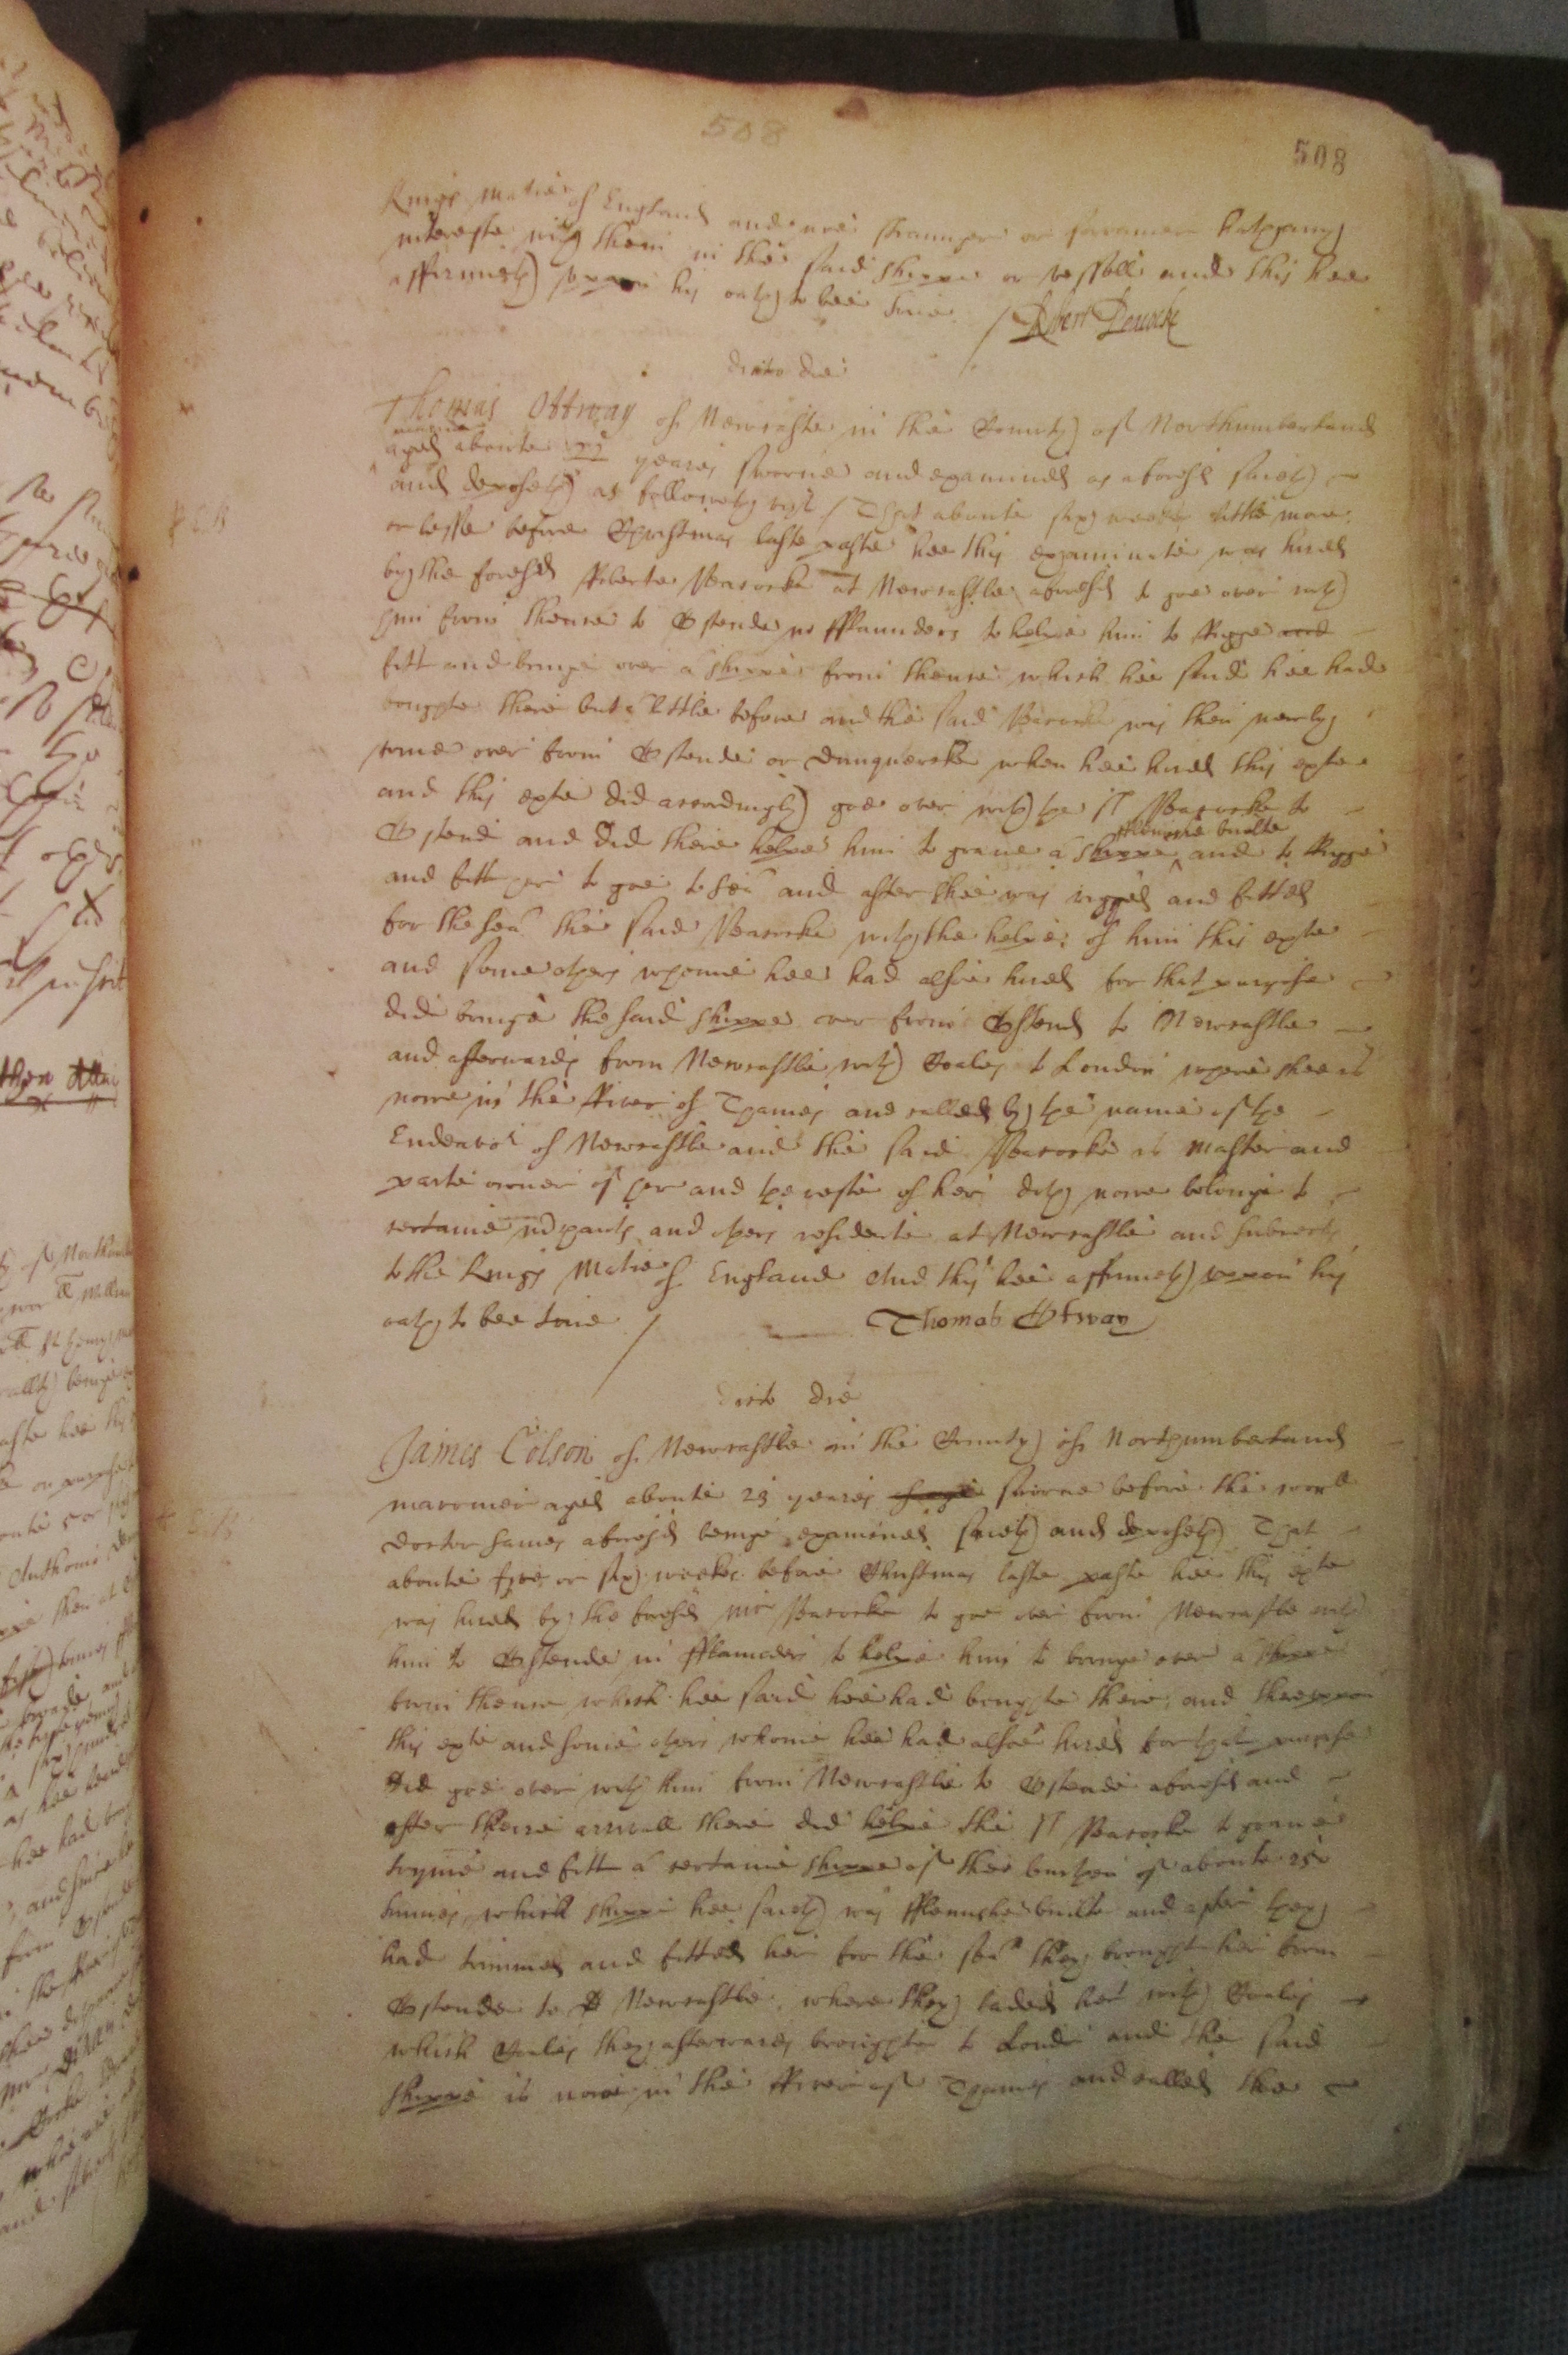 508
508
Kings Matie of England and noe straunger or forraner hathany
intereste with them in the said shippe or vessell and this hee
affirmeth uppon his oath to bee true / Robert
dicto die
Thomas Ottway of Newcastle in the County of Northumberland
mariner
aged aboute yeares sworne and examined as aforesd saieth
and deposeth as followeth vizt / That aboute six weekes little more
or lesse before Christmas laste paste hee this examinate was hired
by the foresd Peacocke at Newcastle aforesd to goe over with
him from thence to Ostende in Flaunders to helpe him to Rigge and
fitt and bringe over a shippe from thence which hee said hee had
boughte there but a little before and the said Peacocke was then newly
come over from Ostende or Dunquerke when hee hired this exte
and this exte did accordingly goe over with the sd Peacocke to
Flemish builte
Ostend and did there helpe him to grave a shippe and to Rigge
and fitt her to goe to sea and after shee was rigged and fitted
for the sea the said Peacocke with the helpe of him this exte
and some others whome hee had alsoe hired for that purpose
did bringe the said shippe over from Ostend to Newcastle
and afterwards from Newcastle with Coales to London where shee is
nowe in the River of Thames and called by the name of the
Endeavor of Newcastle and the said Peacocke is Master and
parte owner of her and the reste of her doth nowe belonge to
certaine mchants and others residente at Newcastle and subiects
to the Kings Matie of England And this hee affirmeth uppon his
oath to bee true / Thomas Otway
dicto die
James Colson of Newcastle in the County of Northumberland
marriner aged aboute 23 yeares sworne before the worll
Doctor James aforesd beinge examined saieth and deposeth That
aboute five or six weekes before Christmas laste paste hee this exte
was hired by the foresd Mr Peacocke to goe over from Newcastle with
him to Ostende in Flaunders to helpe him to bringe over a shippe
from thence which hee said hee had boughte there, and thereuppon
this exte and some others whome hee had alsoe hired for that purpose
did goe over with him from Newcastle to Ostende aforesd and
after theire arrivall there did helpe the sd Peacocke to grave
tryme and fitt a certaine shippe of the burthen of aboute
tunnes, which shippe hee saieth was Flemishe builte and after they
had trimmed and fitted her for the sea they brought her from
Ostende to Newcastle, where they laded her with Coales
which Coales they afterwards broughte to London and the said
shippe is nowe in the River of Thames and called the